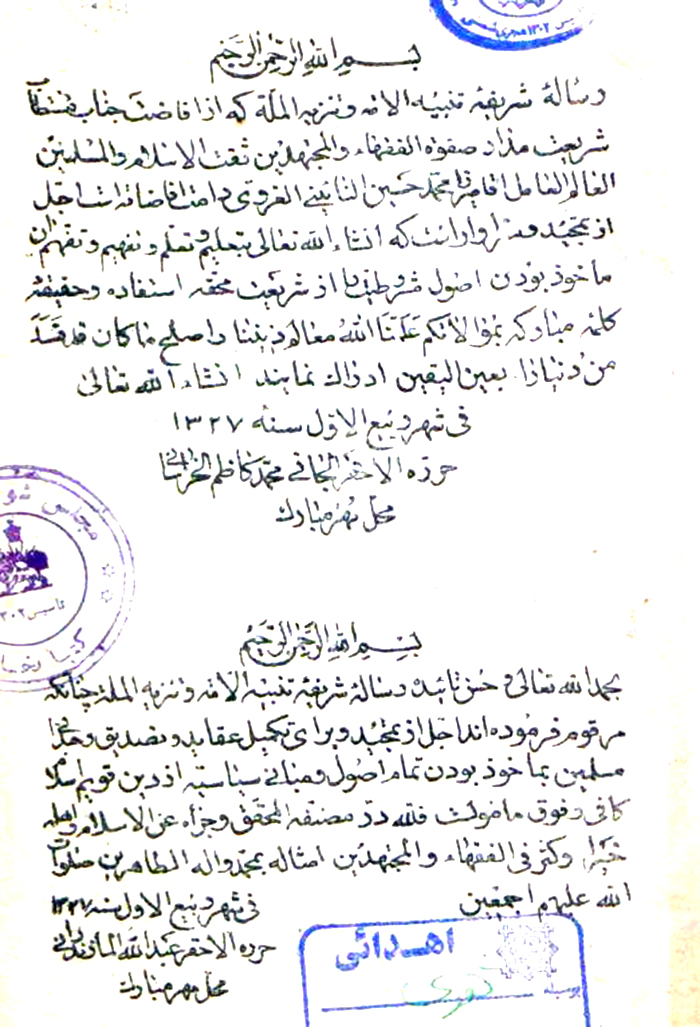 بسم الله الرحمن الرحیم
رسالهٔ شریفهٔ تنبیه الامه و تنزیه الملة که از افاضت جناب مستطاب
شریعت مدار صفوة الفقهاء والمجتهدین ثقت الاسلام والمسلمین
العالم العامل آقا میرزا محمد حسین النائینی الغروی دامت افاضاته است اجل
از تمجید و سزاوار است که انشاء الله تعالی بتعلیم و تعلم و تفهیم و تفهم آن
مأخوذ بودن اصول مشروطیت را از شریعت محقه استفاده و حقیقت
کلمهٔ مبارکه بموالاتکم علمنا الله معالم دیننا و اصلح ما کان قد فسد
من دنیانا را بعین الیقین ادراک نمایند انشاء الله تعالی
فی شهر ربیع الاول سنه ۱۳۲۷
حرره الاحقر الجانی محمد کاظم الخراسانی
محل مهر مبارک
بسم الله الرحمن الرحیم
بحمد الله تعالی و حسن تائیده رسالهٔ شریفهٔ تنبیه الامه و تنزیه الملة چنانکه
مرقوم فرموده اند اجل از تمجید و برای تکمیل عقاید و تصدیق وجدانی
مسلمین بمأخوذ بودن تمام اصول و مبانی سیاسیه از دین قویم اسلام
کافی و فوق مأمولست فلله در مصنفه المحقق وجزاه عن الاسلام و اهله
خیرا وکثر فی الفقهاء والمجتهدین امثاله بمحمد واله الطاهرین صلوات
الله علیهم اجمعین فی شهر ربیع الاول سنه ۱۳۲۷
حرره الاحقر عبدالله المازندرانی
محل مهر مبارک
مجلس شو
تاسیس ۱۳۰۲
کتابخا
اهدائی